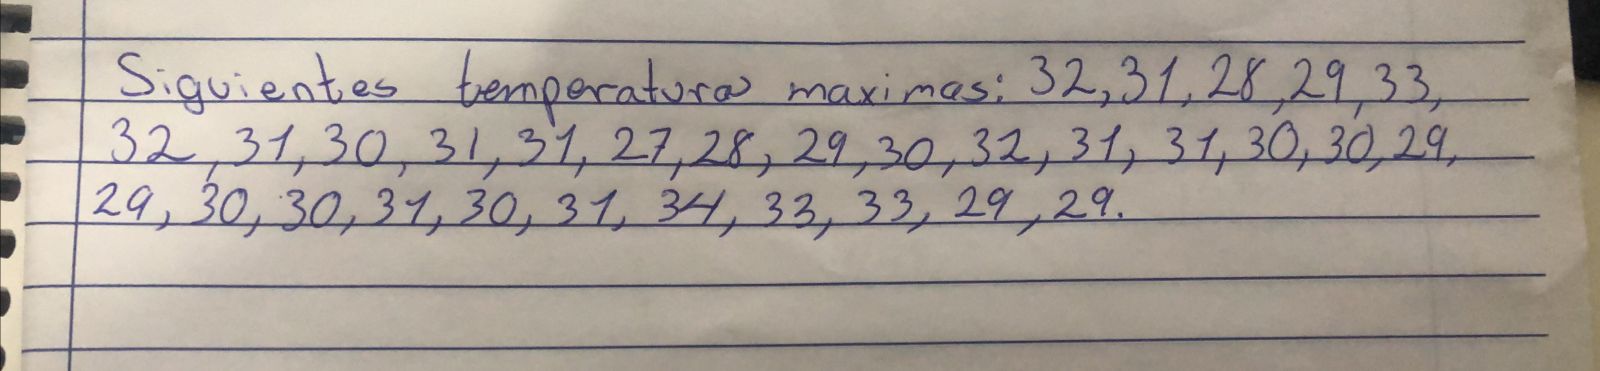 Siguientes temperaturas maximas: 32, 31, 28, 29, 33,
32, 31, 30, 31, 31, 27, 28, 29, 30, 32, 31, 31, 30, 30, 29,
29, 30, 30, 31, 30, 31, 34, 33, 33, 29, 29.